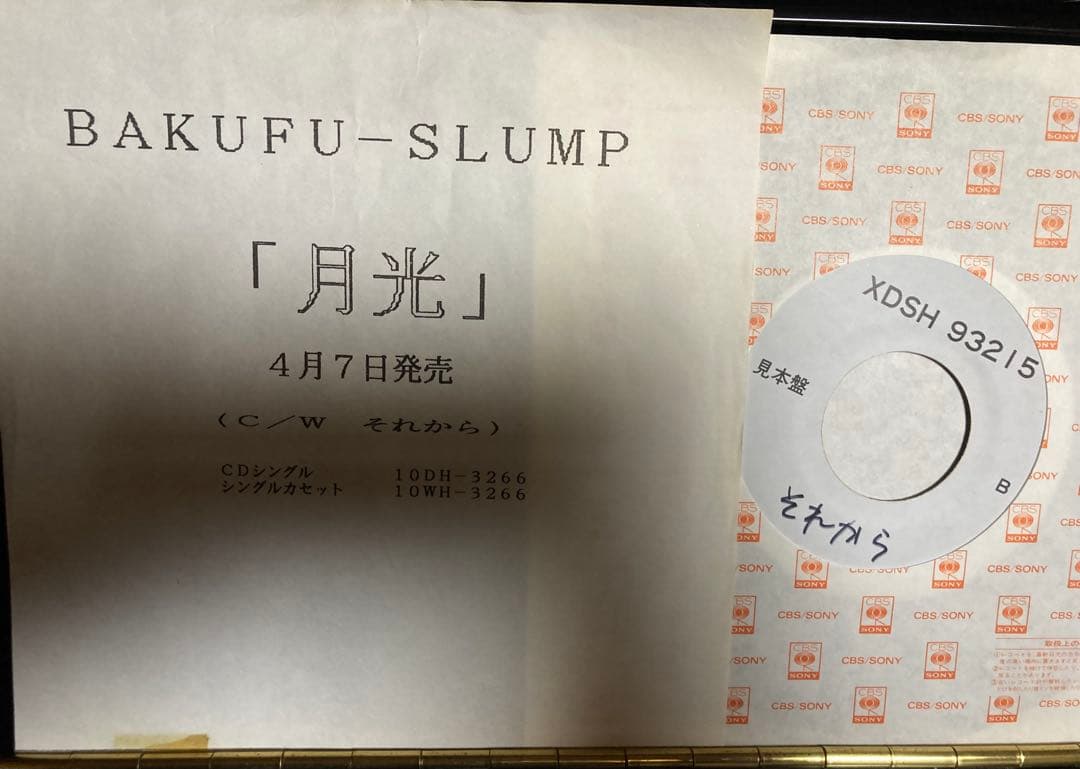 BAKUFU-SLUMP
「月光」
4月7日発売
(C/W それから)
CDシングル 10DH-3266
シングルカセット 10WH-3266
XDSH 93215
見本盤
B
それから
CBS/SONY
CBS
SONY
取扱上の